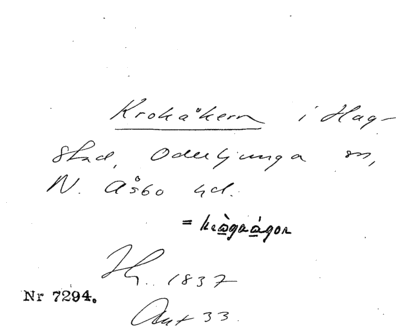 Krokåkern i Hag-
stad, Oderljunga sn,
N. Åsbo hd.
=
H. 1837
Nr 7294.
Ant 33.